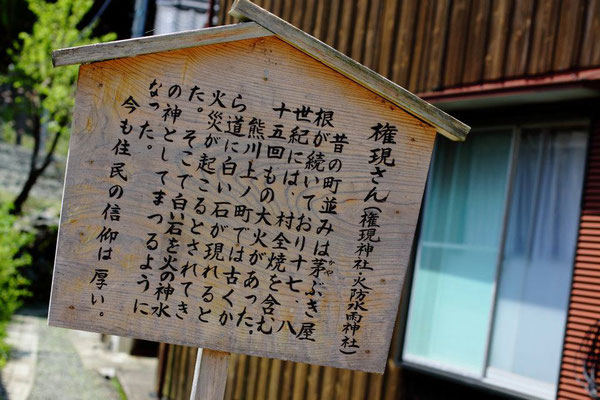 権現さん（権現神社・火防水雨神社）
昔の町並みは茅ぶき屋
かや
根が続いており十七、八
世紀には 村全焼を含む
十五回もの大火があった。
熊川上ノ町では古くか
ら道に白い石が現れると
火災が起こるとされてき
た。そこで白い石を火の神水
の神としてまつるように
なった。
今も住民の信仰は厚い。